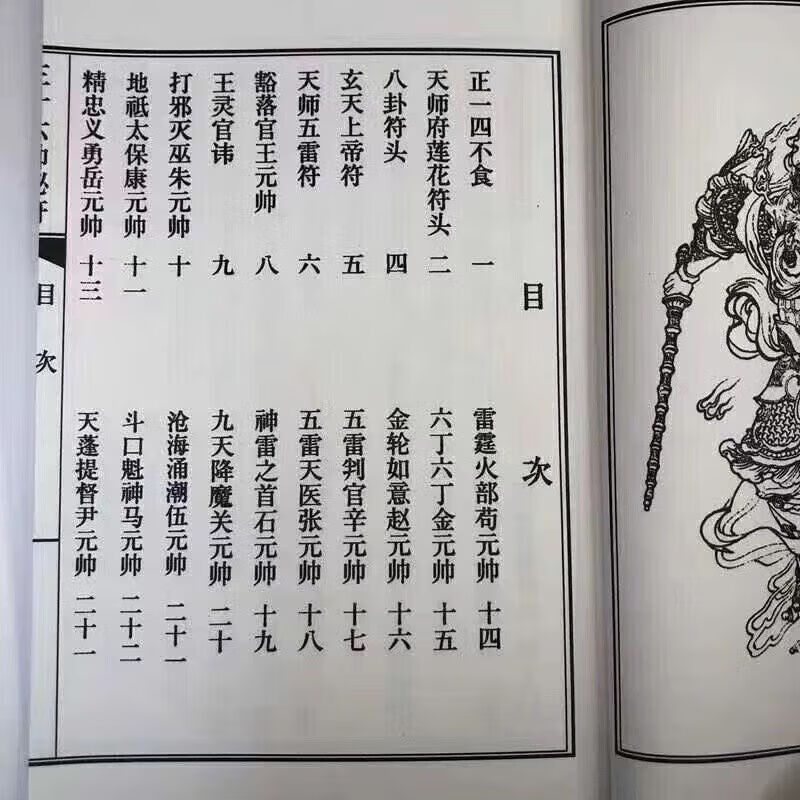 目 次
正一四不食 一
天师府莲花符头 二
八卦符头 四
玄天上帝符 五
天师五雷符 六
豁落官王元帅 八
王灵官讳 九
打邪灭巫朱元帅 十
地祗太保康元帅 十一
精忠义勇岳元帅 十三
雷霆火部苟元帅 十四
六丁六丁金元帅 十五
金轮如意赵元帅 十六
五雷判官辛元帅 十七
五雷天医张元帅 十八
神雷之首石元帅 十九
九天降魔关元帅 二十
沧海涌潮伍元帅 二十一
斗口魁神马元帅 二十二
天蓬提督尹元帅 二十一
目 次